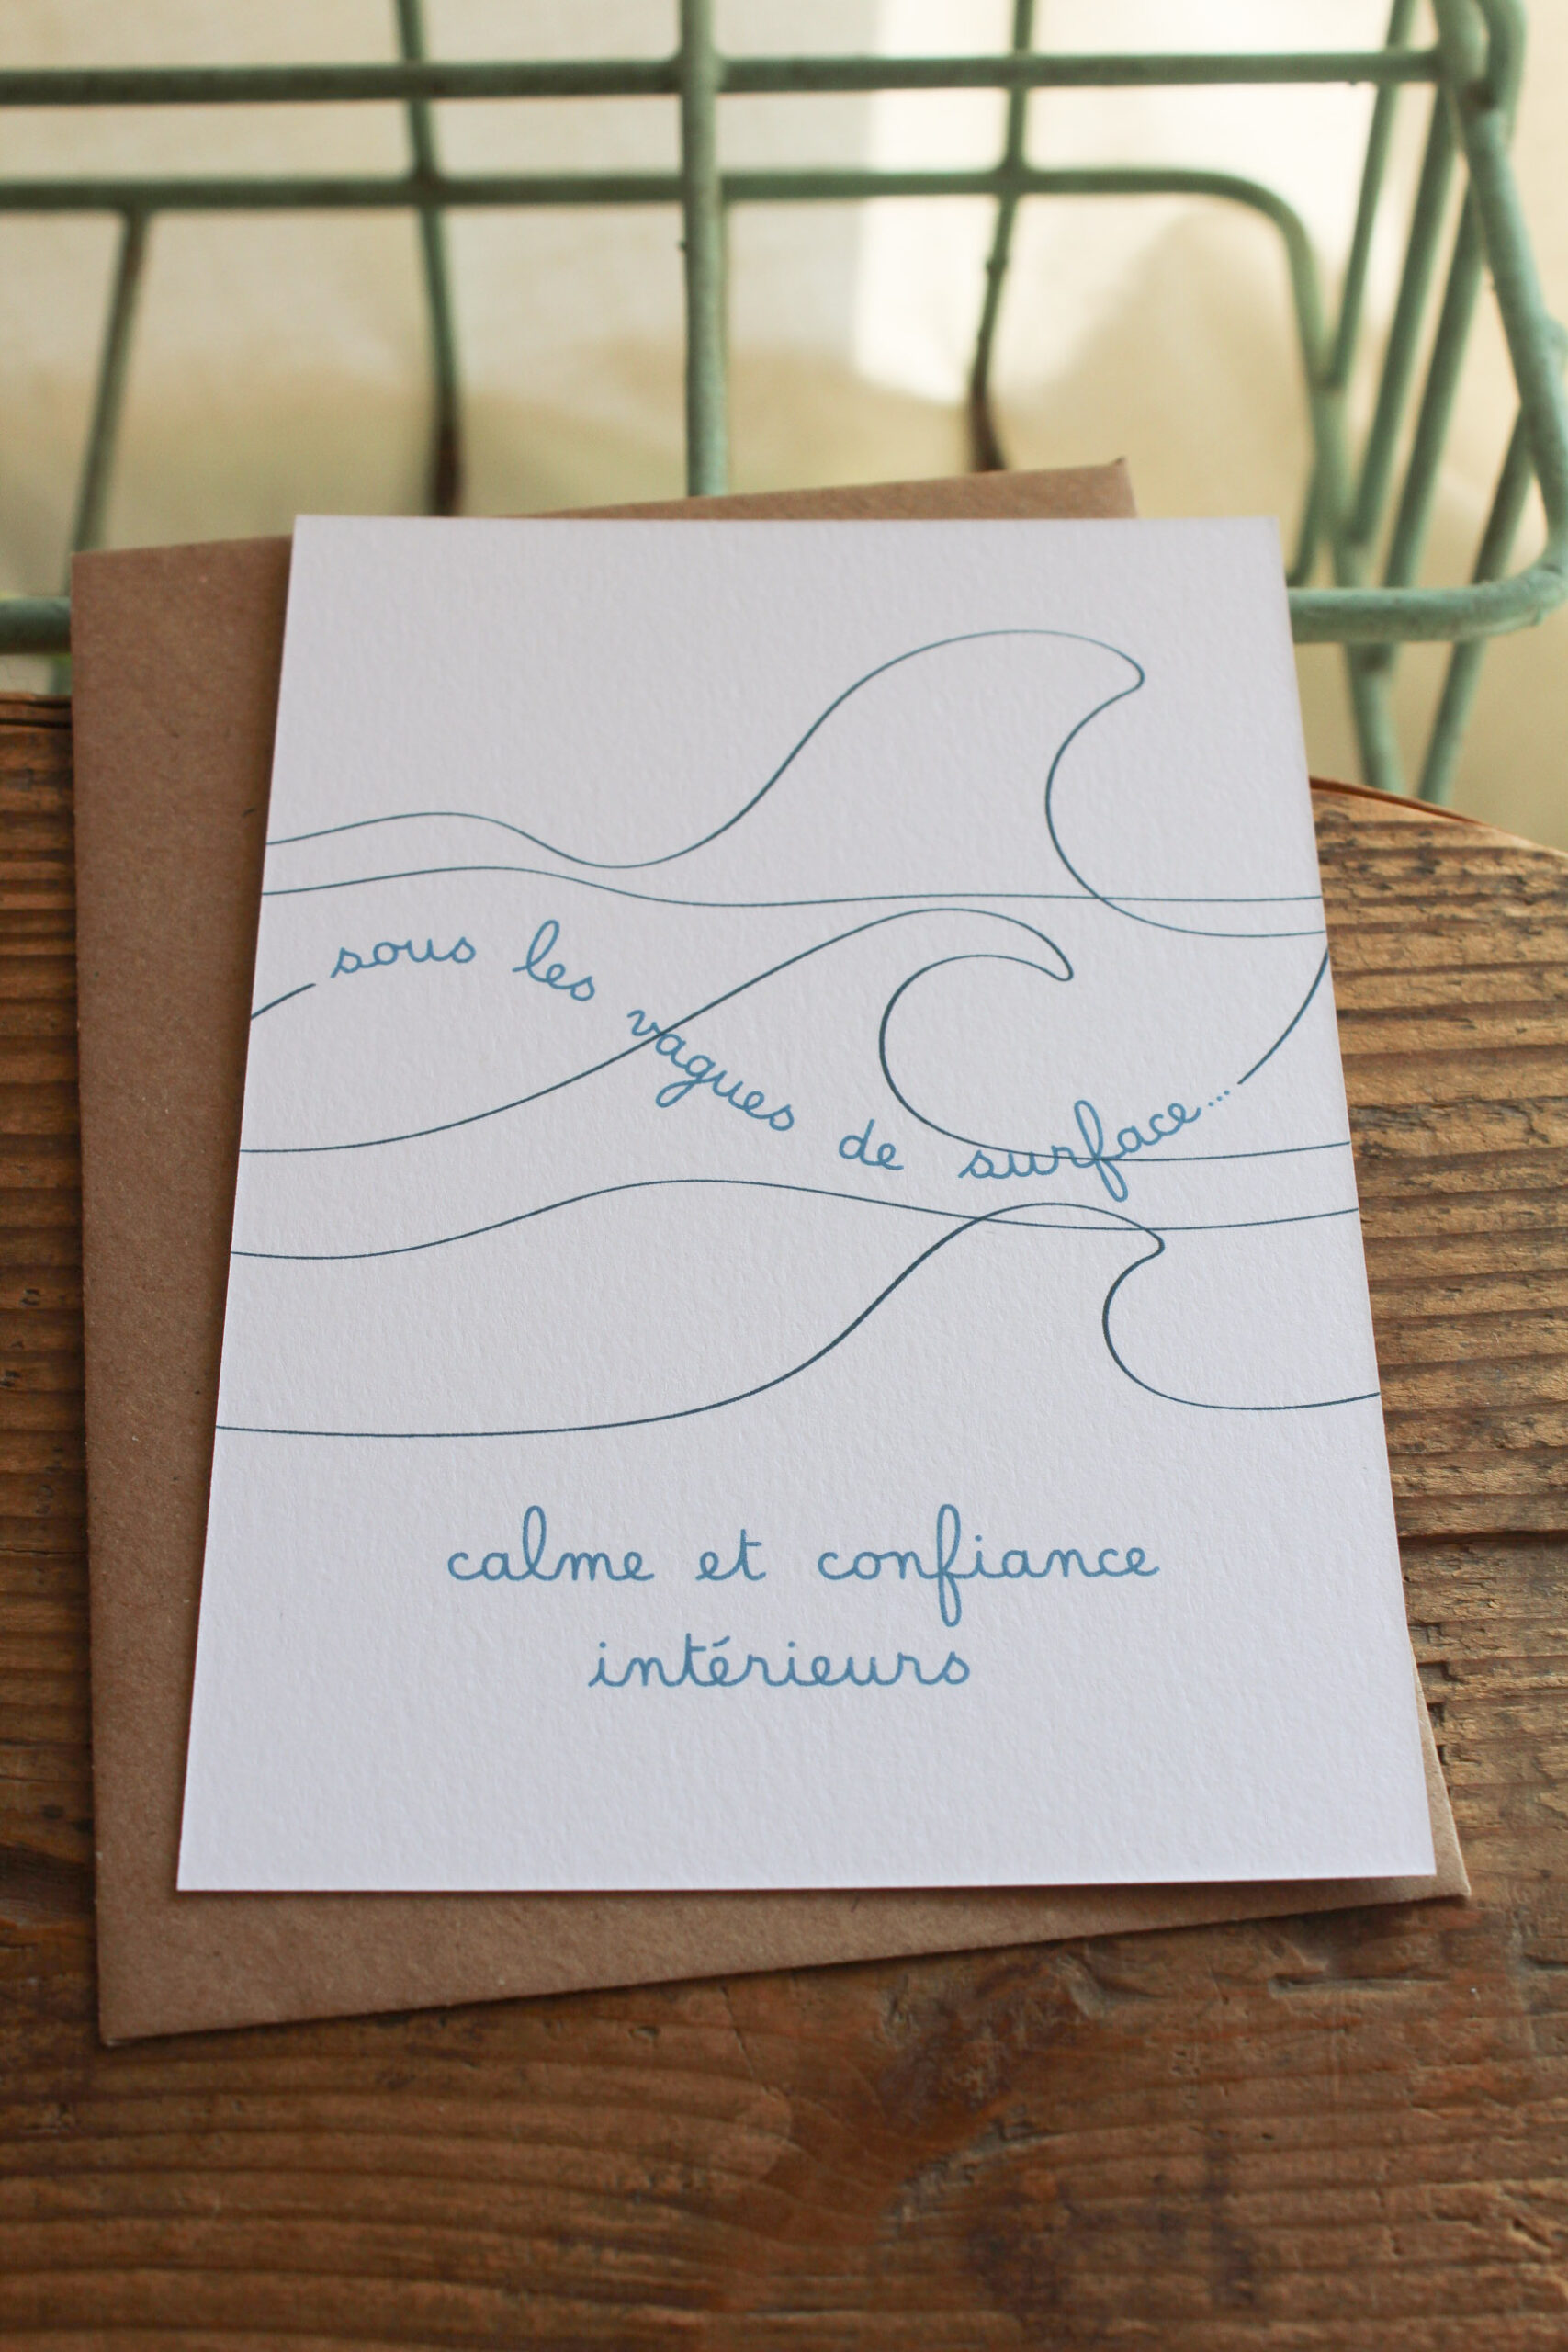 sous les vagues de surface...
calme et confiance
intérieurs